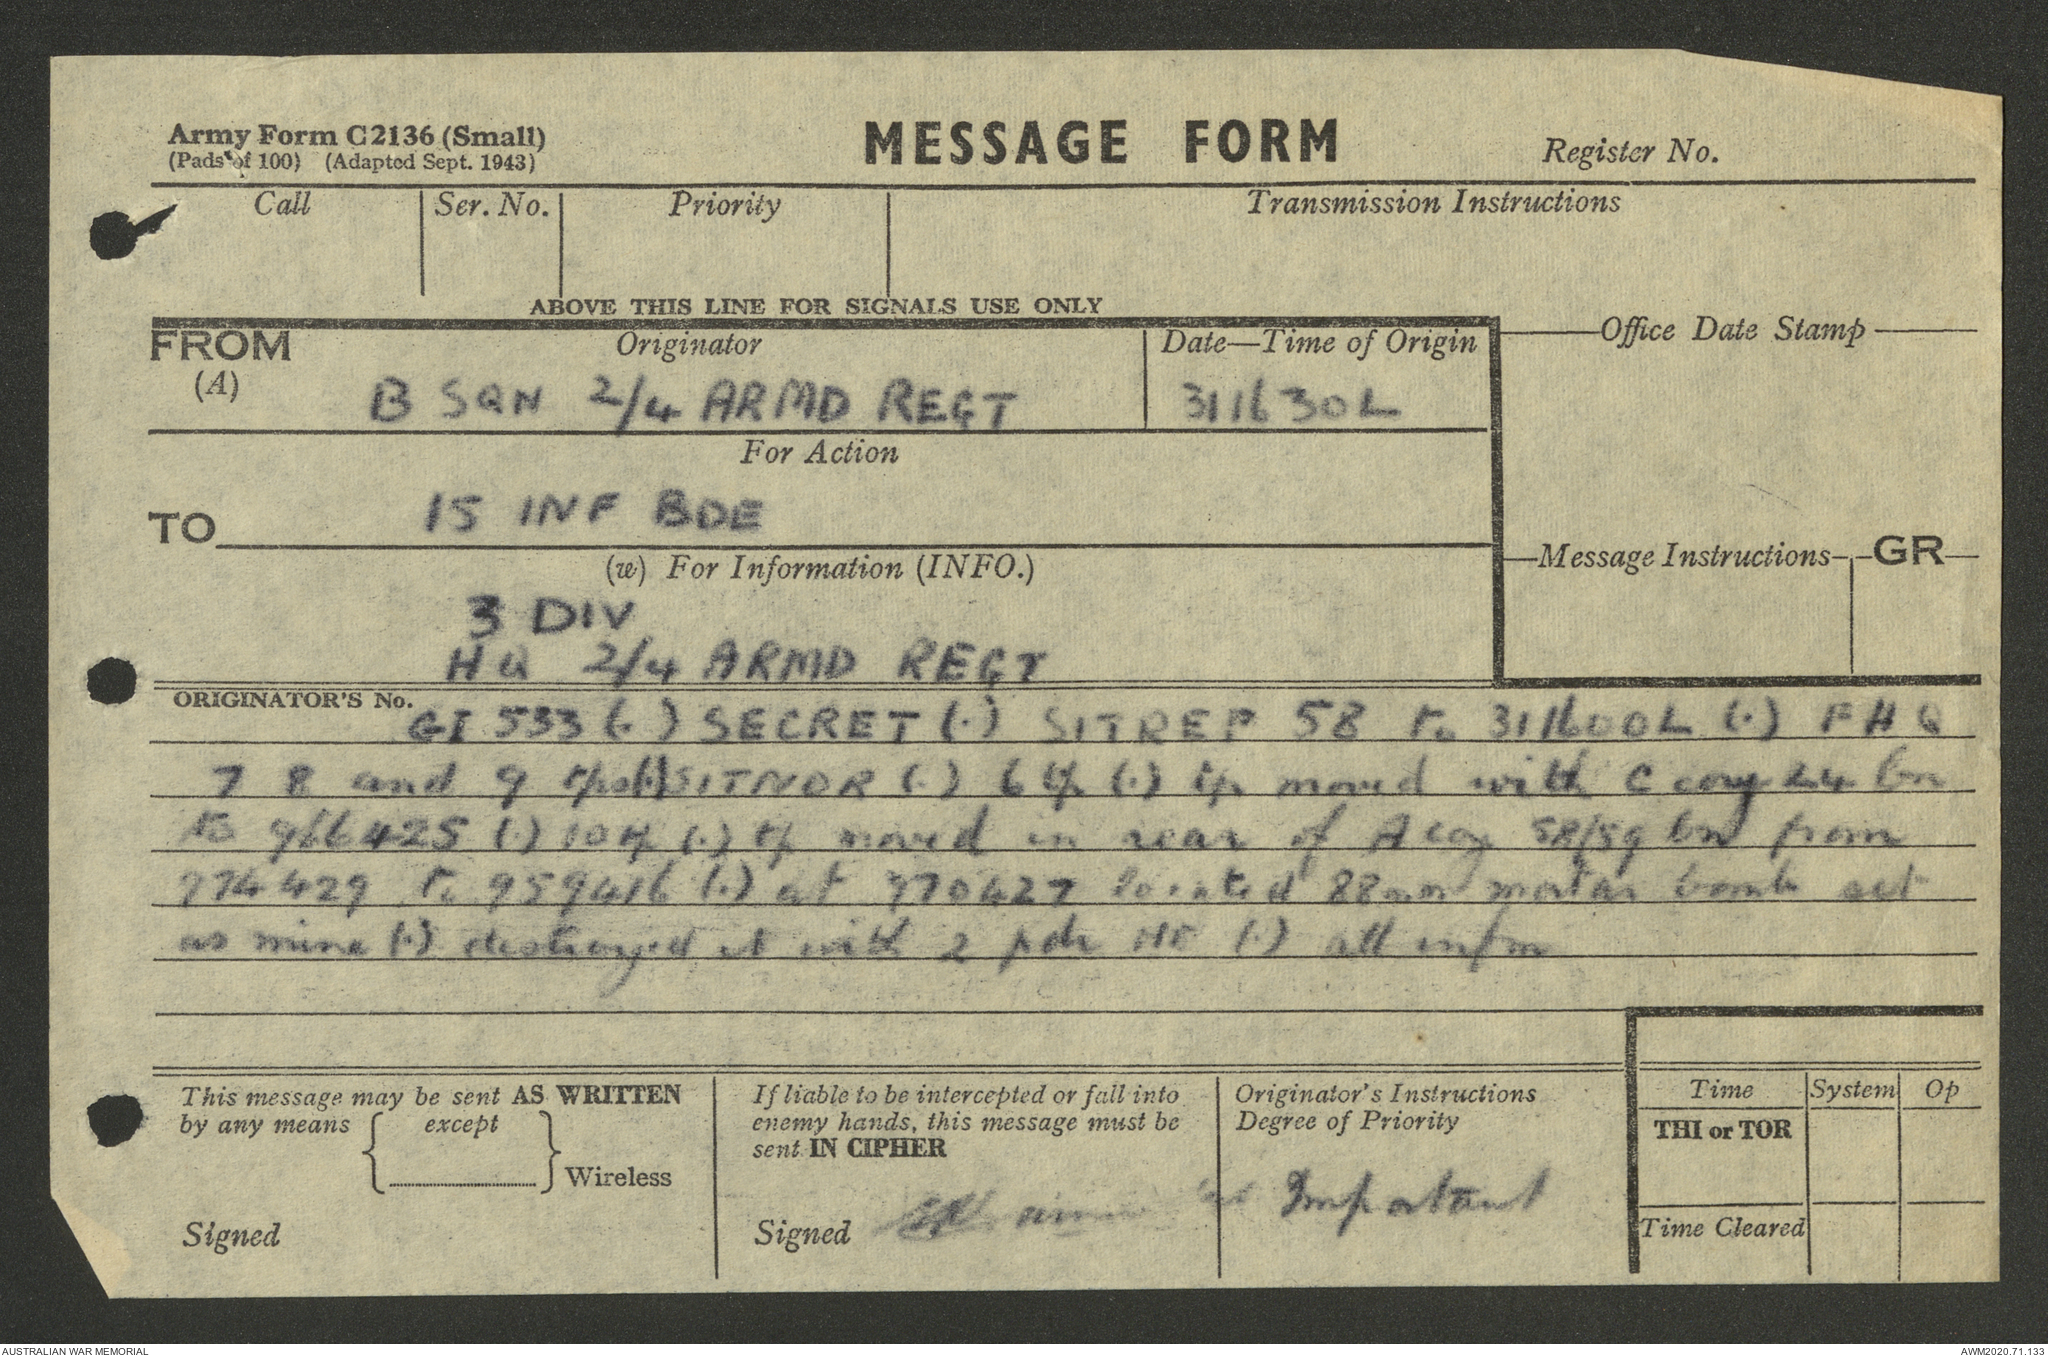 Army Form C2136 (Small)
(Pads of 100) (Adapted Sept. 1943)
MESSAGE FORM
Register No.
Call
Ser. No.
Priority
Transmission Instructions
ABOVE THIS LINE FOR SIGNALS USE ONLY
FROM
(A)
Originator
B SQN 2/4 ARMD REGT
Date—Time of Origin
311630L
Office Date Stamp
For Action
TO
15 INF BDE
(w) For Information (INFO.)
3 DIV
HQ 2/4 ARMD REGT
Message Instructions
GR
ORIGINATOR'S No.
GI 533 (.) SECRET (.) SITREP 58 to 311600L (.) FHQ
7 8 and 9 tps (.) SITNOR (.) 6 tp (.) tp moved with C coy 24 bn
to 966425 (.) 10 tp (.) tp moved in rear of A coy 58/59 bn from
974429 to 959416 (.) at 970427 located 88mm mortar bomb set
as mine (.) destroyed it with 2 pdr HE (.) all infm
This message may be sent AS WRITTEN
by any means
except
Wireless
Signed
If liable to be intercepted or fall into
enemy hands, this message must be
sent IN CIPHER
Signed
Originator's Instructions
Degree of Priority
Important
Time
System
Op
THI or TOR
Time Cleared
AUSTRALIAN WAR MEMORIAL
AWM2020.71.133